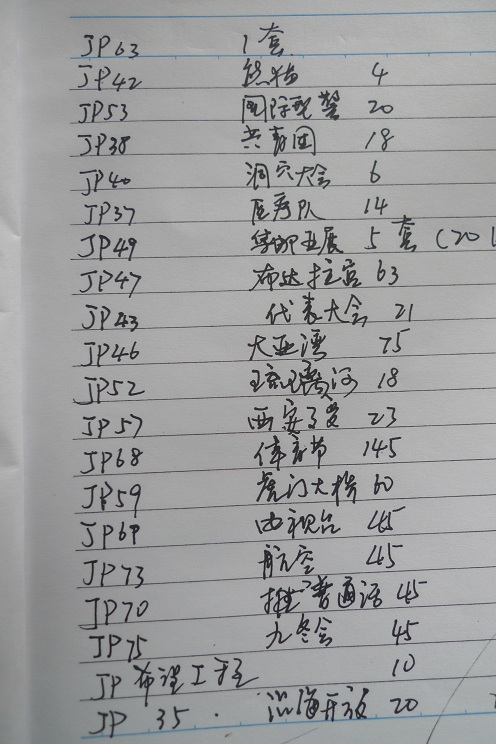 JP63 1套
JP42 熊猫 4
JP53 国际刑警 20
JP38 共青团 18
JP40 洞穴大会 6
JP37 医疗队 14
JP49 亚展 5套(20
JP47 布达拉宫 63
JP43 代表大会 21
JP46 大亚湾 75
JP52 琉璃河 18
JP57 西安 23
JP68 体育节 145
JP59 虎门大桥 60
JP69 电视台 45
JP73 航空 45
JP70 推普通话 45
JP75 九冬会 45
JP 希望工程 10
JP 35. 沿海开放 20